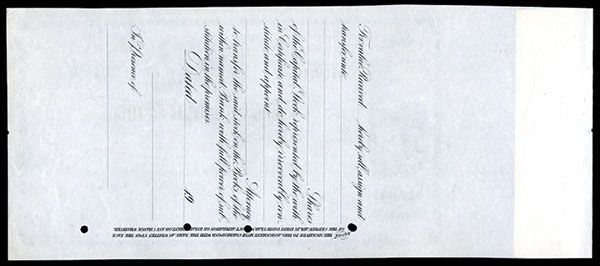 For value Received hereby sell, assign and
transfer unto
Shares
of the Capital Stock represented by the with-
in Certificate and do hereby irrevocably con-
stitute and appoint
Attorney
to transfer the said stock on the Books of the
within named Bank with full power of sub-
stitution in the premises.
Dated 19
In Presence of
NOTICE THE SIGNATURE TO THIS ASSIGNMENT MUST CORRESPOND WITH THE NAME AS WRITTEN UPON THE FACE
OF THE CERTIFICATE, IN EVERY PARTICULAR, WITHOUT ALTERATION OR ENLARGEMENT OR ANY CHANGE WHATEVER.